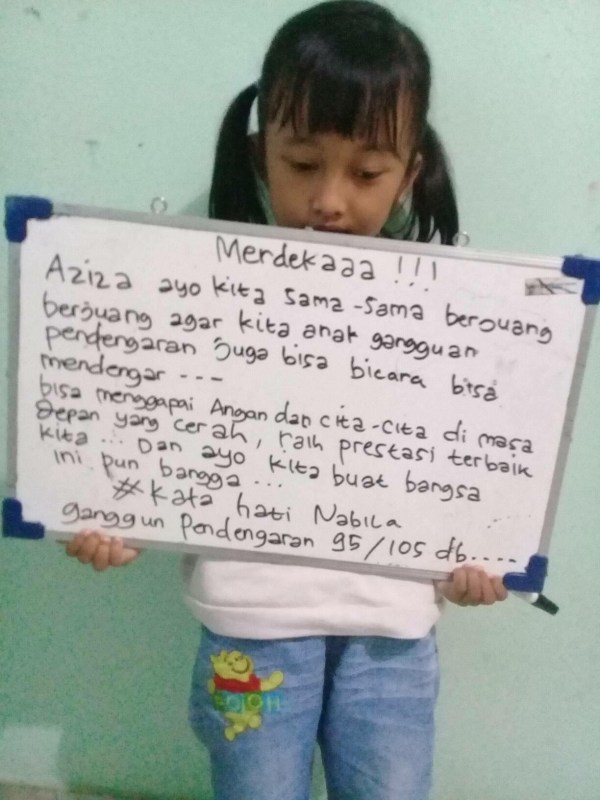 Merdekaaa !!!
Aziza ayo kita sama-sama berjuang
berjuang agar kita anak gangguan
pendengaran juga bisa bicara bisa
mendengar ---
bisa menggapai Angan dan cita-cita di masa
depan yang cerah, raih prestasi terbaik
kita ... Dan ayo kita buat bangsa
ini pun bangga ...
#kata hati Nabila
ganggun pendengaran 95/105 db....